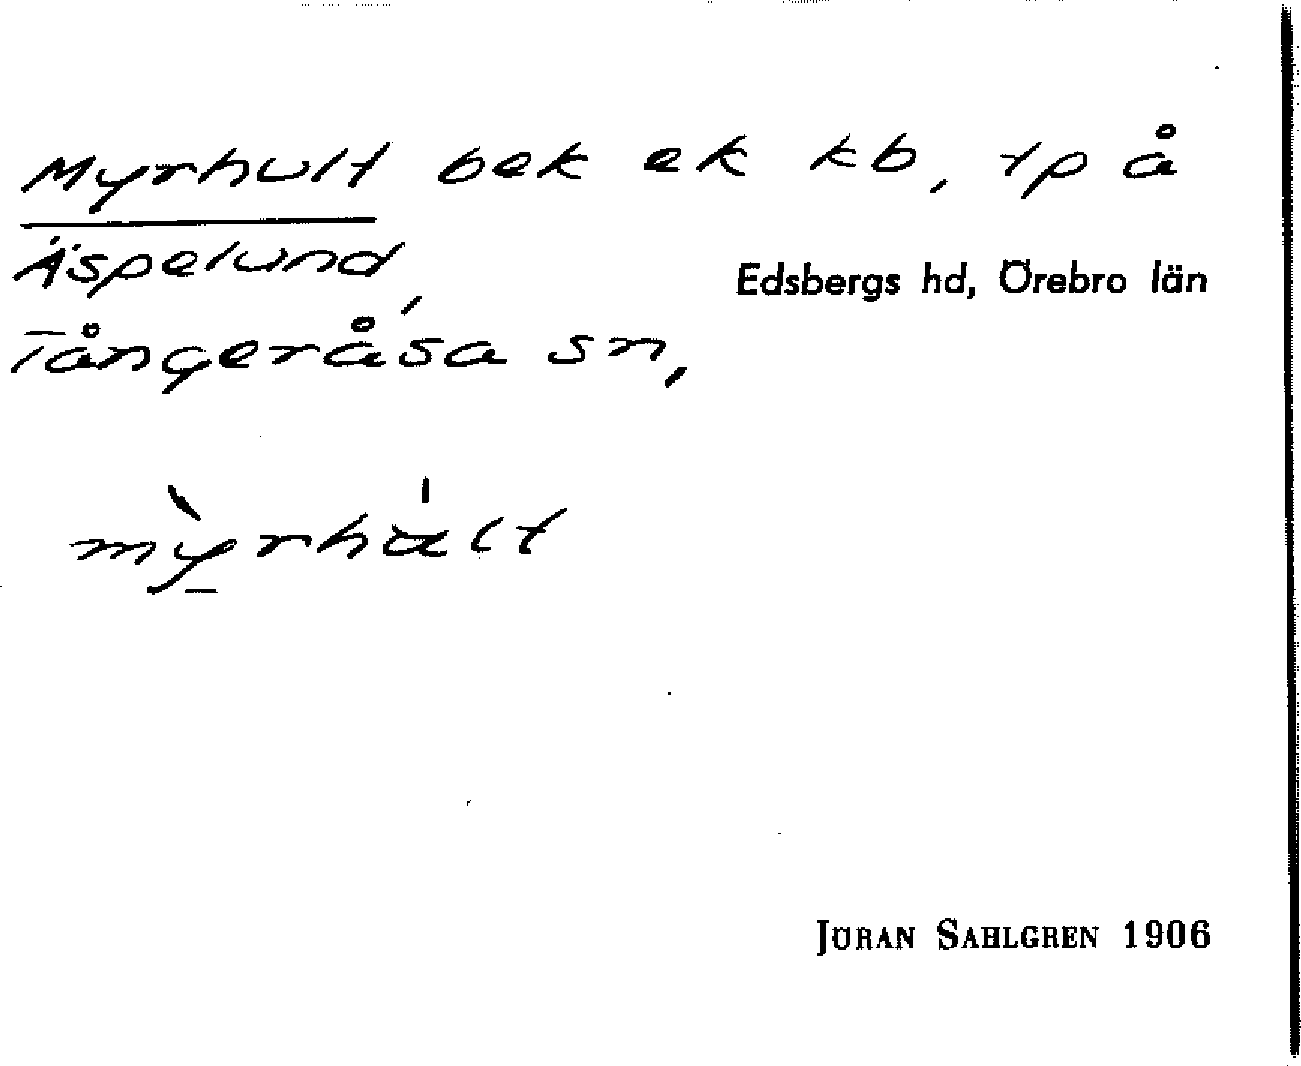 Myrhult bek ek kb, tp å
Äspelund,
Edsbergs hd, Örebro län
Tångeråsa sn,
mỳrhu̍lt
JÖRAN SAHLGREN 1906